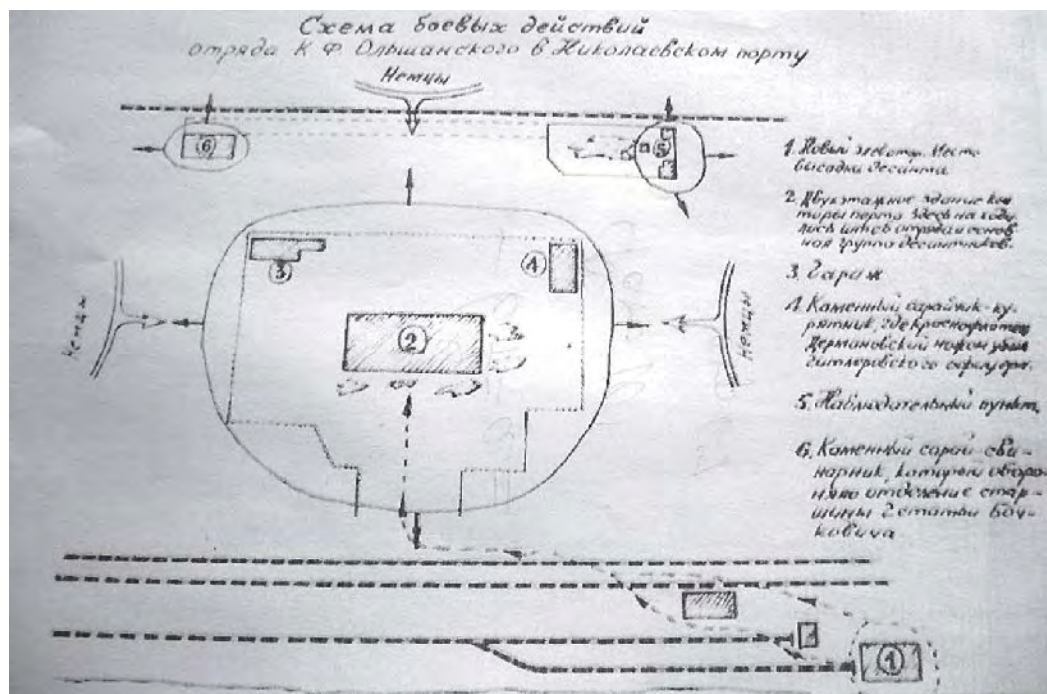 Схема боевых действий
отряда К Ф Ольшанского в Николаевском порту
Немцы
6
5
3
4
2
Немцы
Немцы
1
1. Новый элеватор. Место
высадки десанта
2. Двухэтажное здание кон
торы порта здесь находи
лись штаб отряда и основ
ная группа десантников.
3. Гараж
4. Каменный сарайчик-ку-
рятник, где краснофлотец
Дермановский ножом убил
гитлеровского офицера.
5. Наблюдательный пункт,
6. Каменный сарай-сви-
нарник, который оборо
няло отделение стар-
шины 2 статьи Боч-
ковича